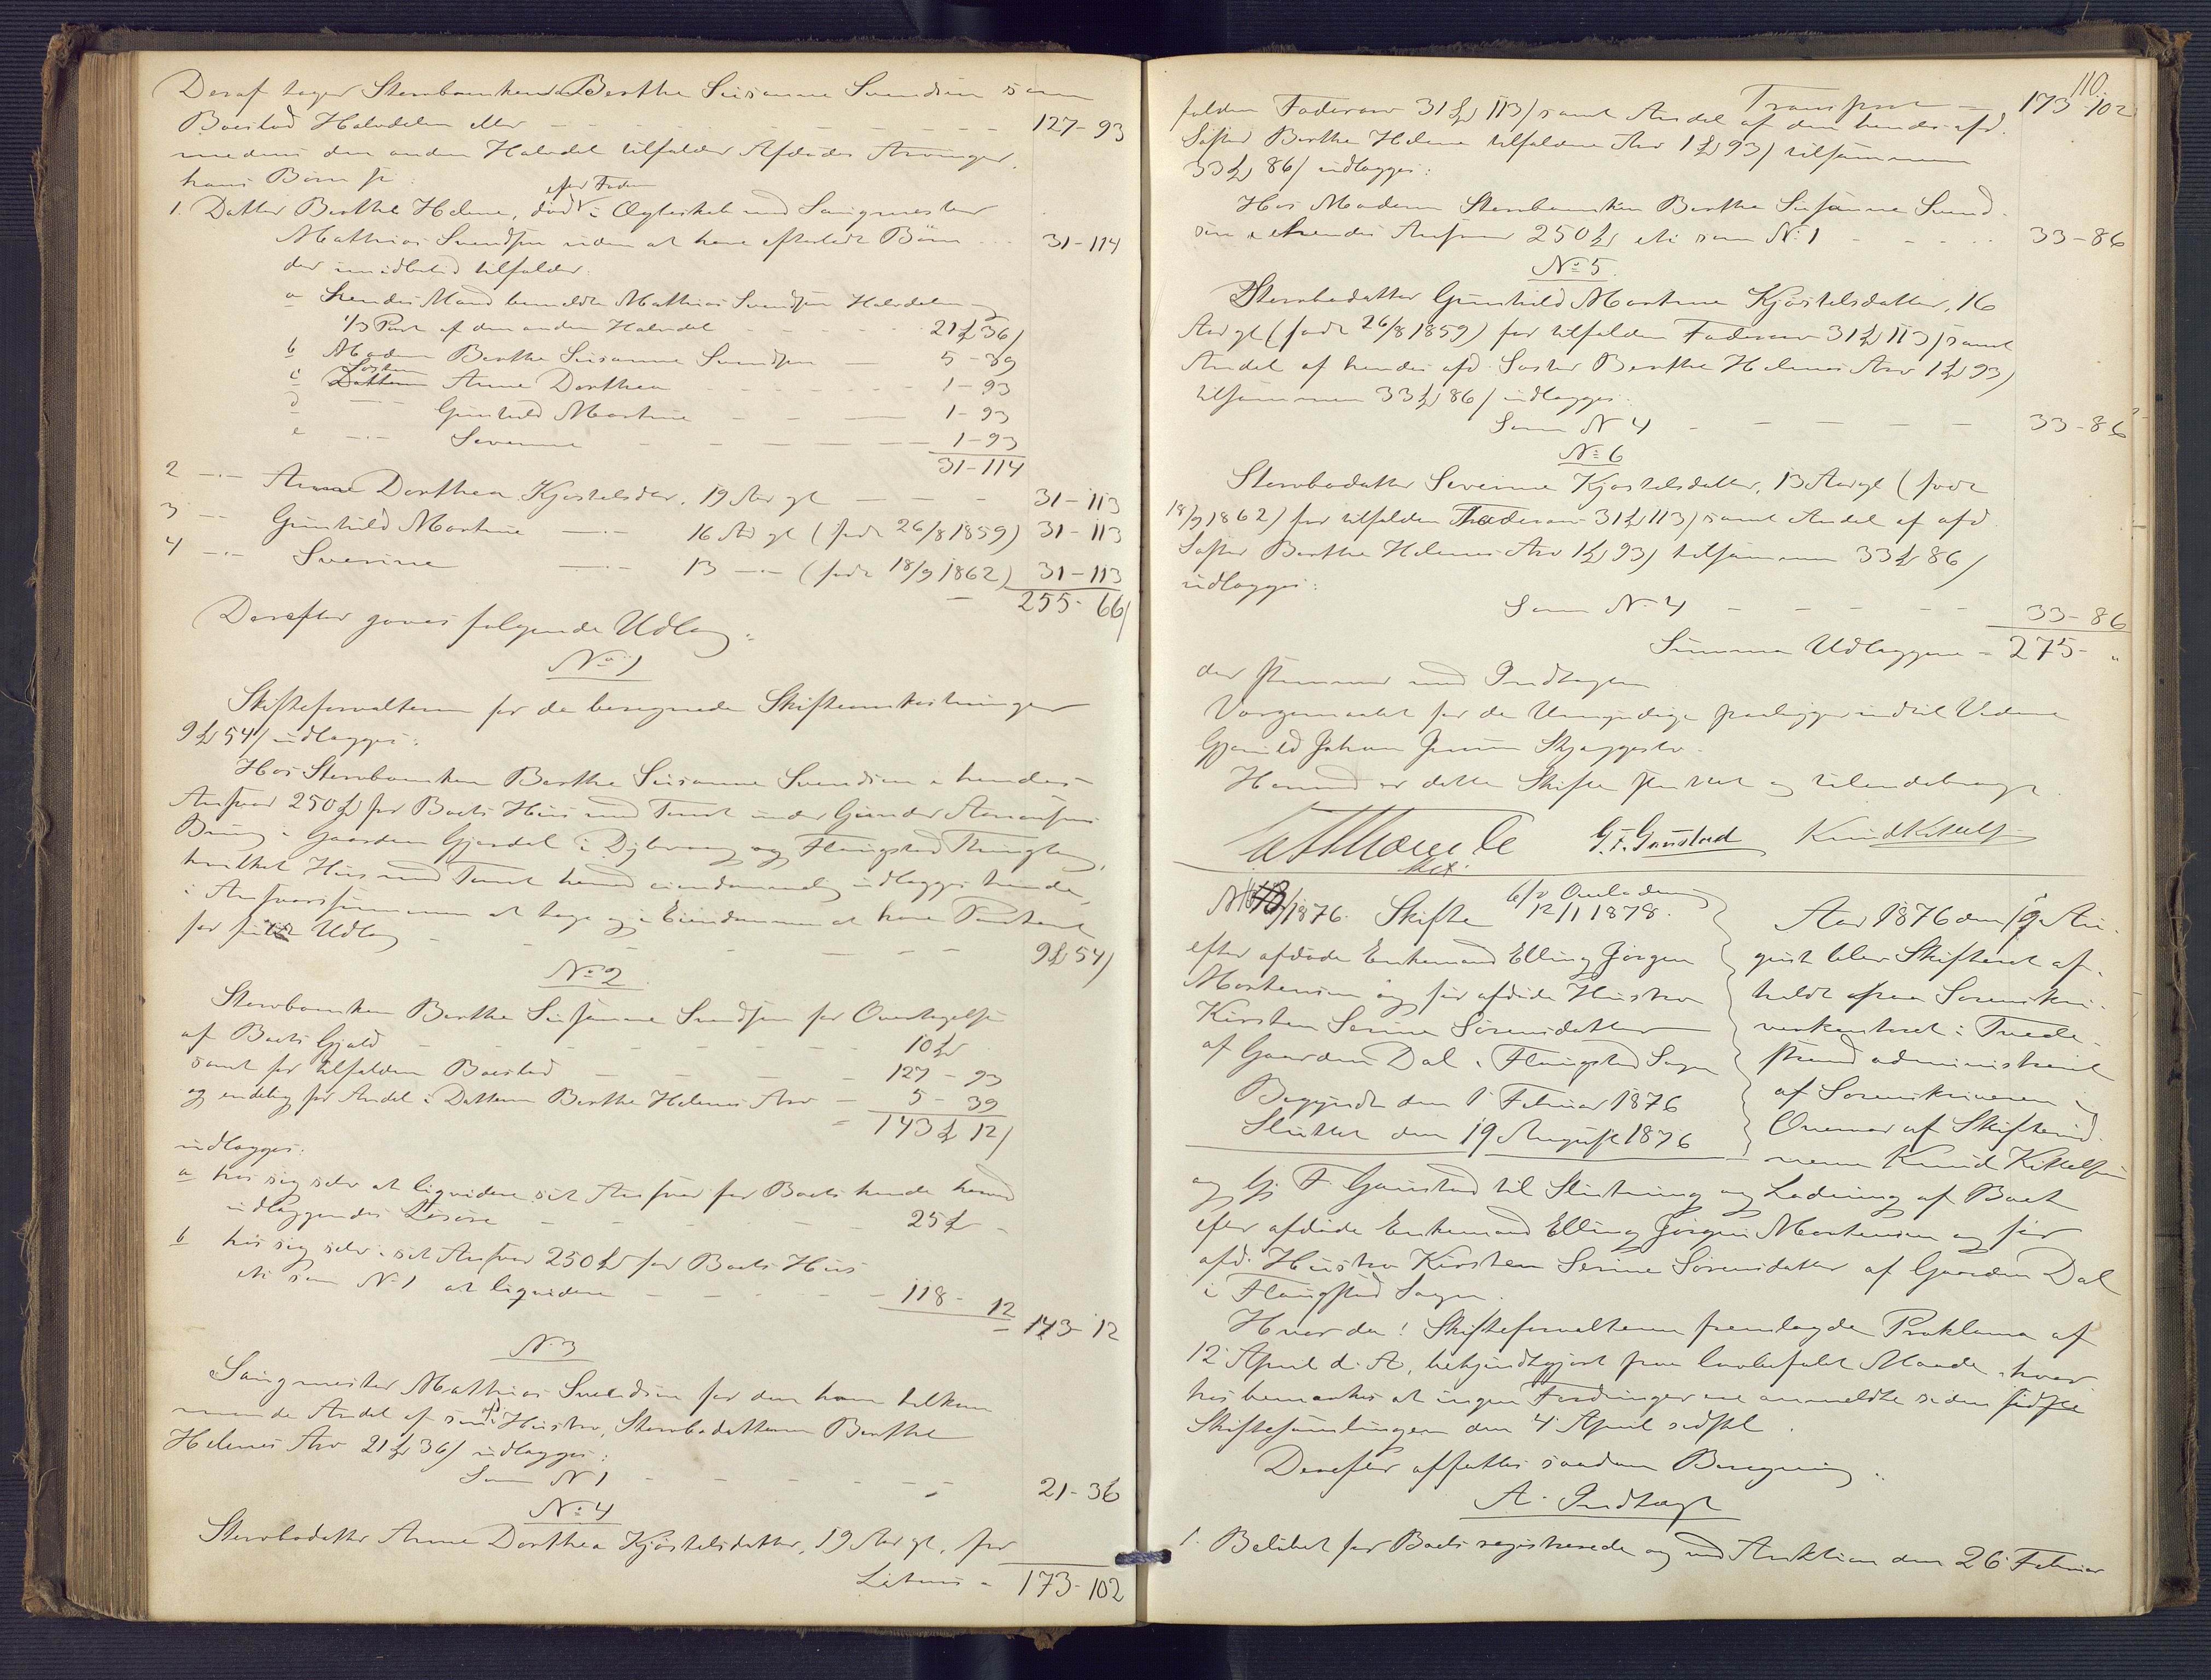 Deraf tager Stervboenken Berthe Susanne Svendsen som
Boeslod Halvdelen eller 127-93
medens den anden Halvdel tilfalder Afdødes Arvinger,
hans Børn s:
1. Datter Berthe Helene, død efter Faderen i Ægteskab med Saugmester
Mathias Svendsen uden at have efterladt Børn 31-114
der imidlertid tilfalder:
a hendes Mand bemeldte Mathias Svendsen Halvdelen og
1/3 Part af den anden Halvdel 21 36
b Moderen Berthe Susanne Svendsen 5-39
c Søsteren Anne Dorthea 1-93
d Gunhild Martine 1-93
e Severine 1-93
31-114
2 Anne Dorthea Kjøstelsdtr. 19 Aar gl 31-113
3 Gunhild Martine 16 Aar gl (født 26/8 1859) 31-113
4 Severine 13 (født 18/9 1862) 31-113
255-66
Derefter gjøres følgende Udlæg:
No 1
Skifteforvalteren for de beregnede Skifteomkostninger
9 54 udlægges:
Hos Stervboenken Berthe Susanne Svendsen i hendes
Ansvar 250 for Boets Huus med Tomt under Gunder Aanonsens
Brug i Gaarden Gjerdal i Dybvaag og Flangstad Thinglag,
hvilket Huus med Tomt hermed eiendommelig udlægges hende,
i Ansvarssummen at tage og i Eiendommen at have Panteret
for Udlæg 9 54
No 2
Stervboenken Berthe Susanne Svendsen for Overtagelse
af Boets Gjæld 10
samt for tilfalden Boeslod 127-93
og endelig for Andel i Datteren Berthe Helenes Arv 5-39
143 12
udlægges:
a hos sig selv at liqvidere sit Ansvar for Boets hende hermed
udlæggendes Løsøre 25
b hos sig selv i sit Ansvar 250 for Boets Huus
etc som No 1 at liqvidere 118-12
143-12
N. 3
Saugmester Mathias Svendsen for den ham tilkom
mende Andel af sin afd. Hustru, Stervbodatteren Berthe
Helenes Arv 21 36 udlægges:
Som N 1 21-36
No 4
Stervbodatter Anne Dorthea Kjøstelsdatter, 19 Aar gl, for
Latus 173-102
110.
Transport 173-102
falden Faderarv 31 113 samt Andel af den hendes afd.
Søster Berthe Helene tilfaldne Arv 1 93 tilsammen
33 86 udlægges:
Hos Moderen Stervboenken Berthe Susanne Svend-
sen i hendes Ansvar 250 etc som No 1 33-86
No 5.
Stervbodatter Gunhild Martine Kjøstelsdatter, 16
Aar gl (født 26/8 1859) for tilfalden Faderarv 31 113 samt
Andel af hendes afd. Søster Berthe Helenes Arv 1 93
tilsammen 33 86 udlægges:
Som N 4 33-86
No 6
Stervbodatter Severine Kjøstelsdatter, 13 Aar gl (født
18/9 1862) for tilfalden Faderarv 31 113 samt Andel af afd
Søster Berthe Helenes Arv 1 93 tilsammen 33 86
udlægges:
Som No 4 33-86
Summa Udlæggene 275-"
der stemmer med Indtægten
Værgemaalet for de Umyndige paaligger indtil Videre
Johan Jensen
Hermed er dette Skifte sluttet og tilendebragt.
G. F. Gaustad Knud Kittelsen
/1876. Skifte 12/1 1878.
efter afdøde Enkemand Elling Jørgen
Mortensen og før afdøde Hustru
Kirsten Serine Sørensdatter
af Gaarden Dal i Flangstad Sogn
Begyndt den 1 Februar 1876
Sluttet den 19 August 1876
Aar 1876 den 19 Au-
gust blev Skifteret af-
holdt paa Sorenskri-
verkontoret i Tvede-
strand administreret
af Sorenskriveren i
Overvær af Skiftevid-
nerne Knud Kittelsen
og G. F. Gaustad til Slutning og Lodning af Boet
efter afdøde Enkemand Elling Jørgen Mortensen og før
afd. Hustru Kirsten Serine Sørensdatter af Gaarden Dal
i Flangstad Sogn.
Hvor da: Skifteforvalteren fremlagde Proklama af
12 April d. A, bekjendtgjort paa lovbefalet Maade, hvor
hos bemærkes at ingen Fordringer ere anmeldte siden
Skiftesamlingen den 4 April sidstl.
Derefter affattes saadan Beregning:
A. Indtægt
1. Beløbet for Boets registrerede og ved Auktion den 26 Februar